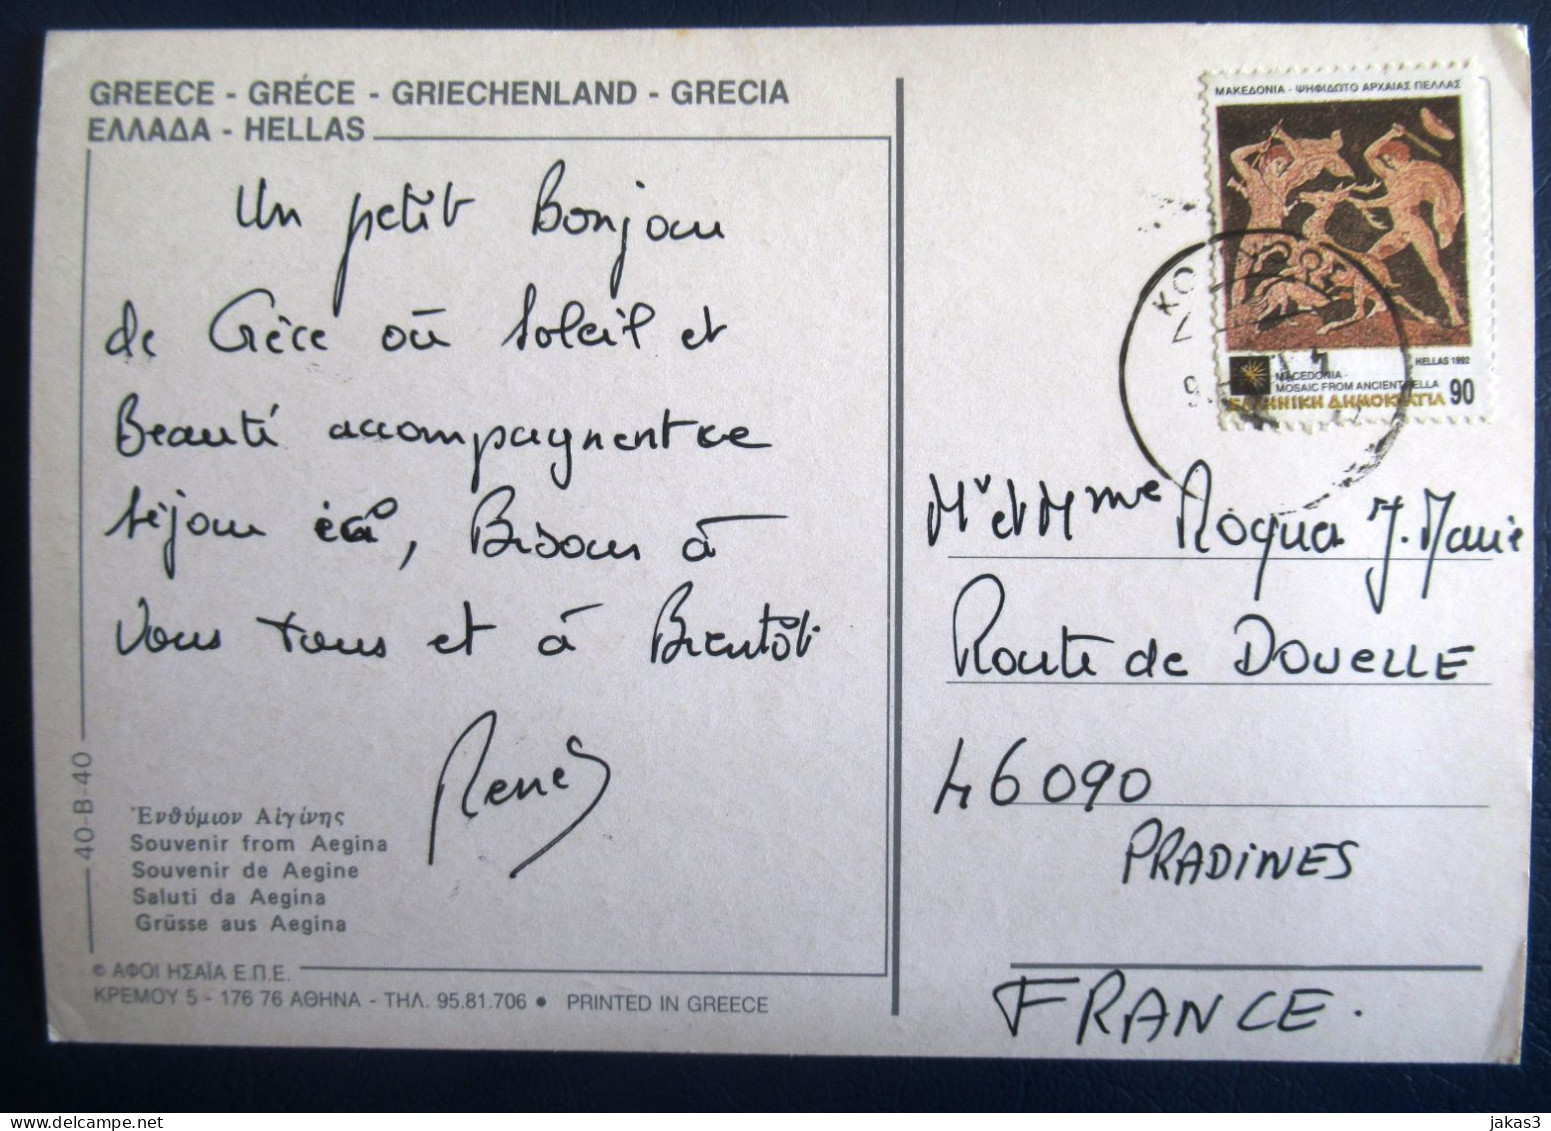 GREECE - GRÉCE - GRIECHENLAND - GRECIA
ΕΛΛΑΔΑ - HELLAS
Un petit Bonjour
de Grèce où Soleil et
Beauté accompagnent ce
séjour, Bisous à
Vous tous et à Bientôt
René
40-B-40
Ἐνθύμιον Αἰγίνης
Souvenir from Aegina
Souvenir de Aegine
Saluti da Aegina
Grüsse aus Aegina
© ΑΦΟΙ ΗΣΑΪΑ Ε.Π.Ε.
ΚΡΕΜΟΥ 5 - 176 76 ΑΘΗΝΑ - ΤΗΛ. 95.81.706 • PRINTED IN GREECE
ΜΑΚΕΔΟΝΙΑ - ΨΗΦΙΔΩΤΟ ΑΡΧΑΙΑΣ ΠΕΛΛΑΣ
HELLAS 1992
MACEDONIA -
MOSAIC FROM ANCIENT PELLA
ΕΛΛΗΝΙΚΗ ΔΗΜΟΚΡΑΤΙΑ 90
Mr et Mme Roqua J. Marie
Route de DOUELLE
46090
PRADINES
FRANCE.
jakas3